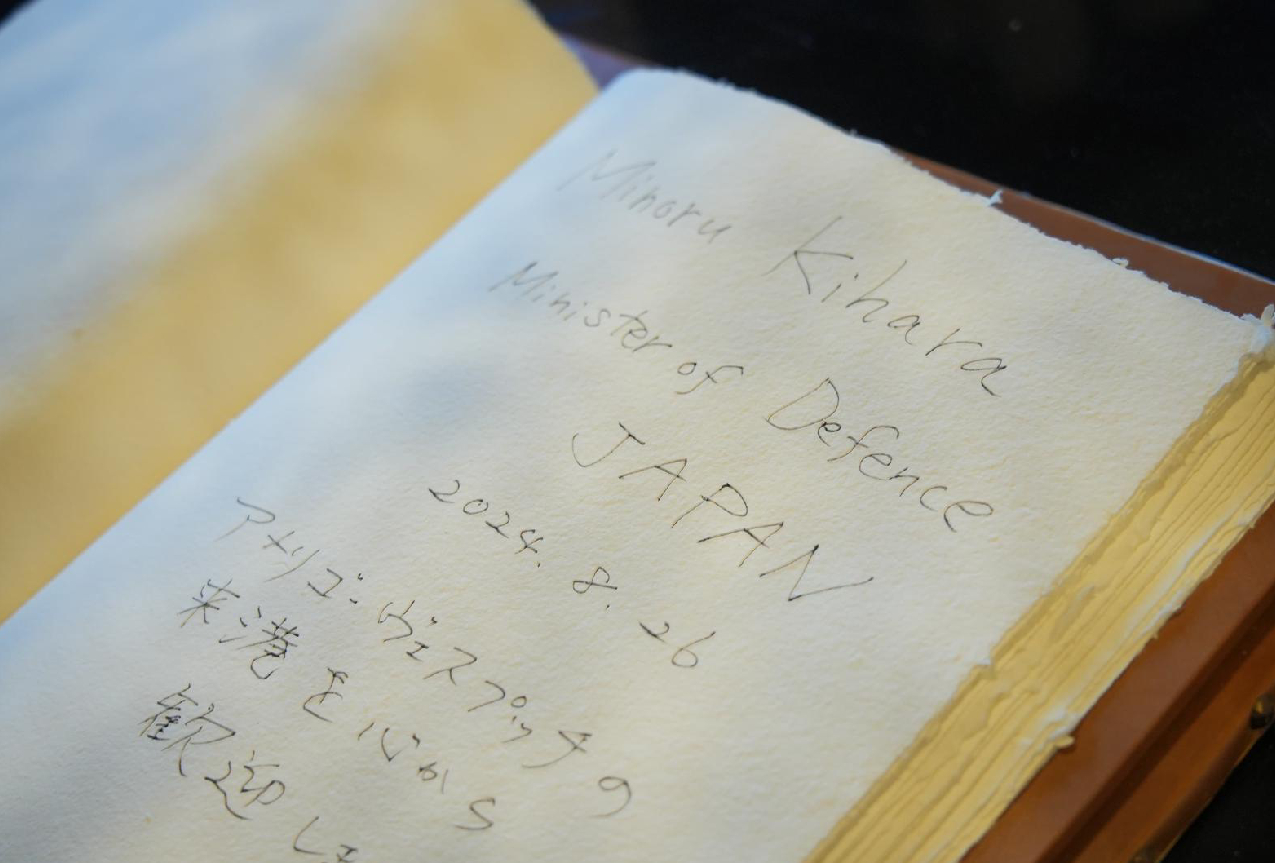 Minoru Kihara
Minister of Defence
JAPAN
2024. 8. 26
アメリゴ・ヴェスプッチの
来港を心から
歓迎し